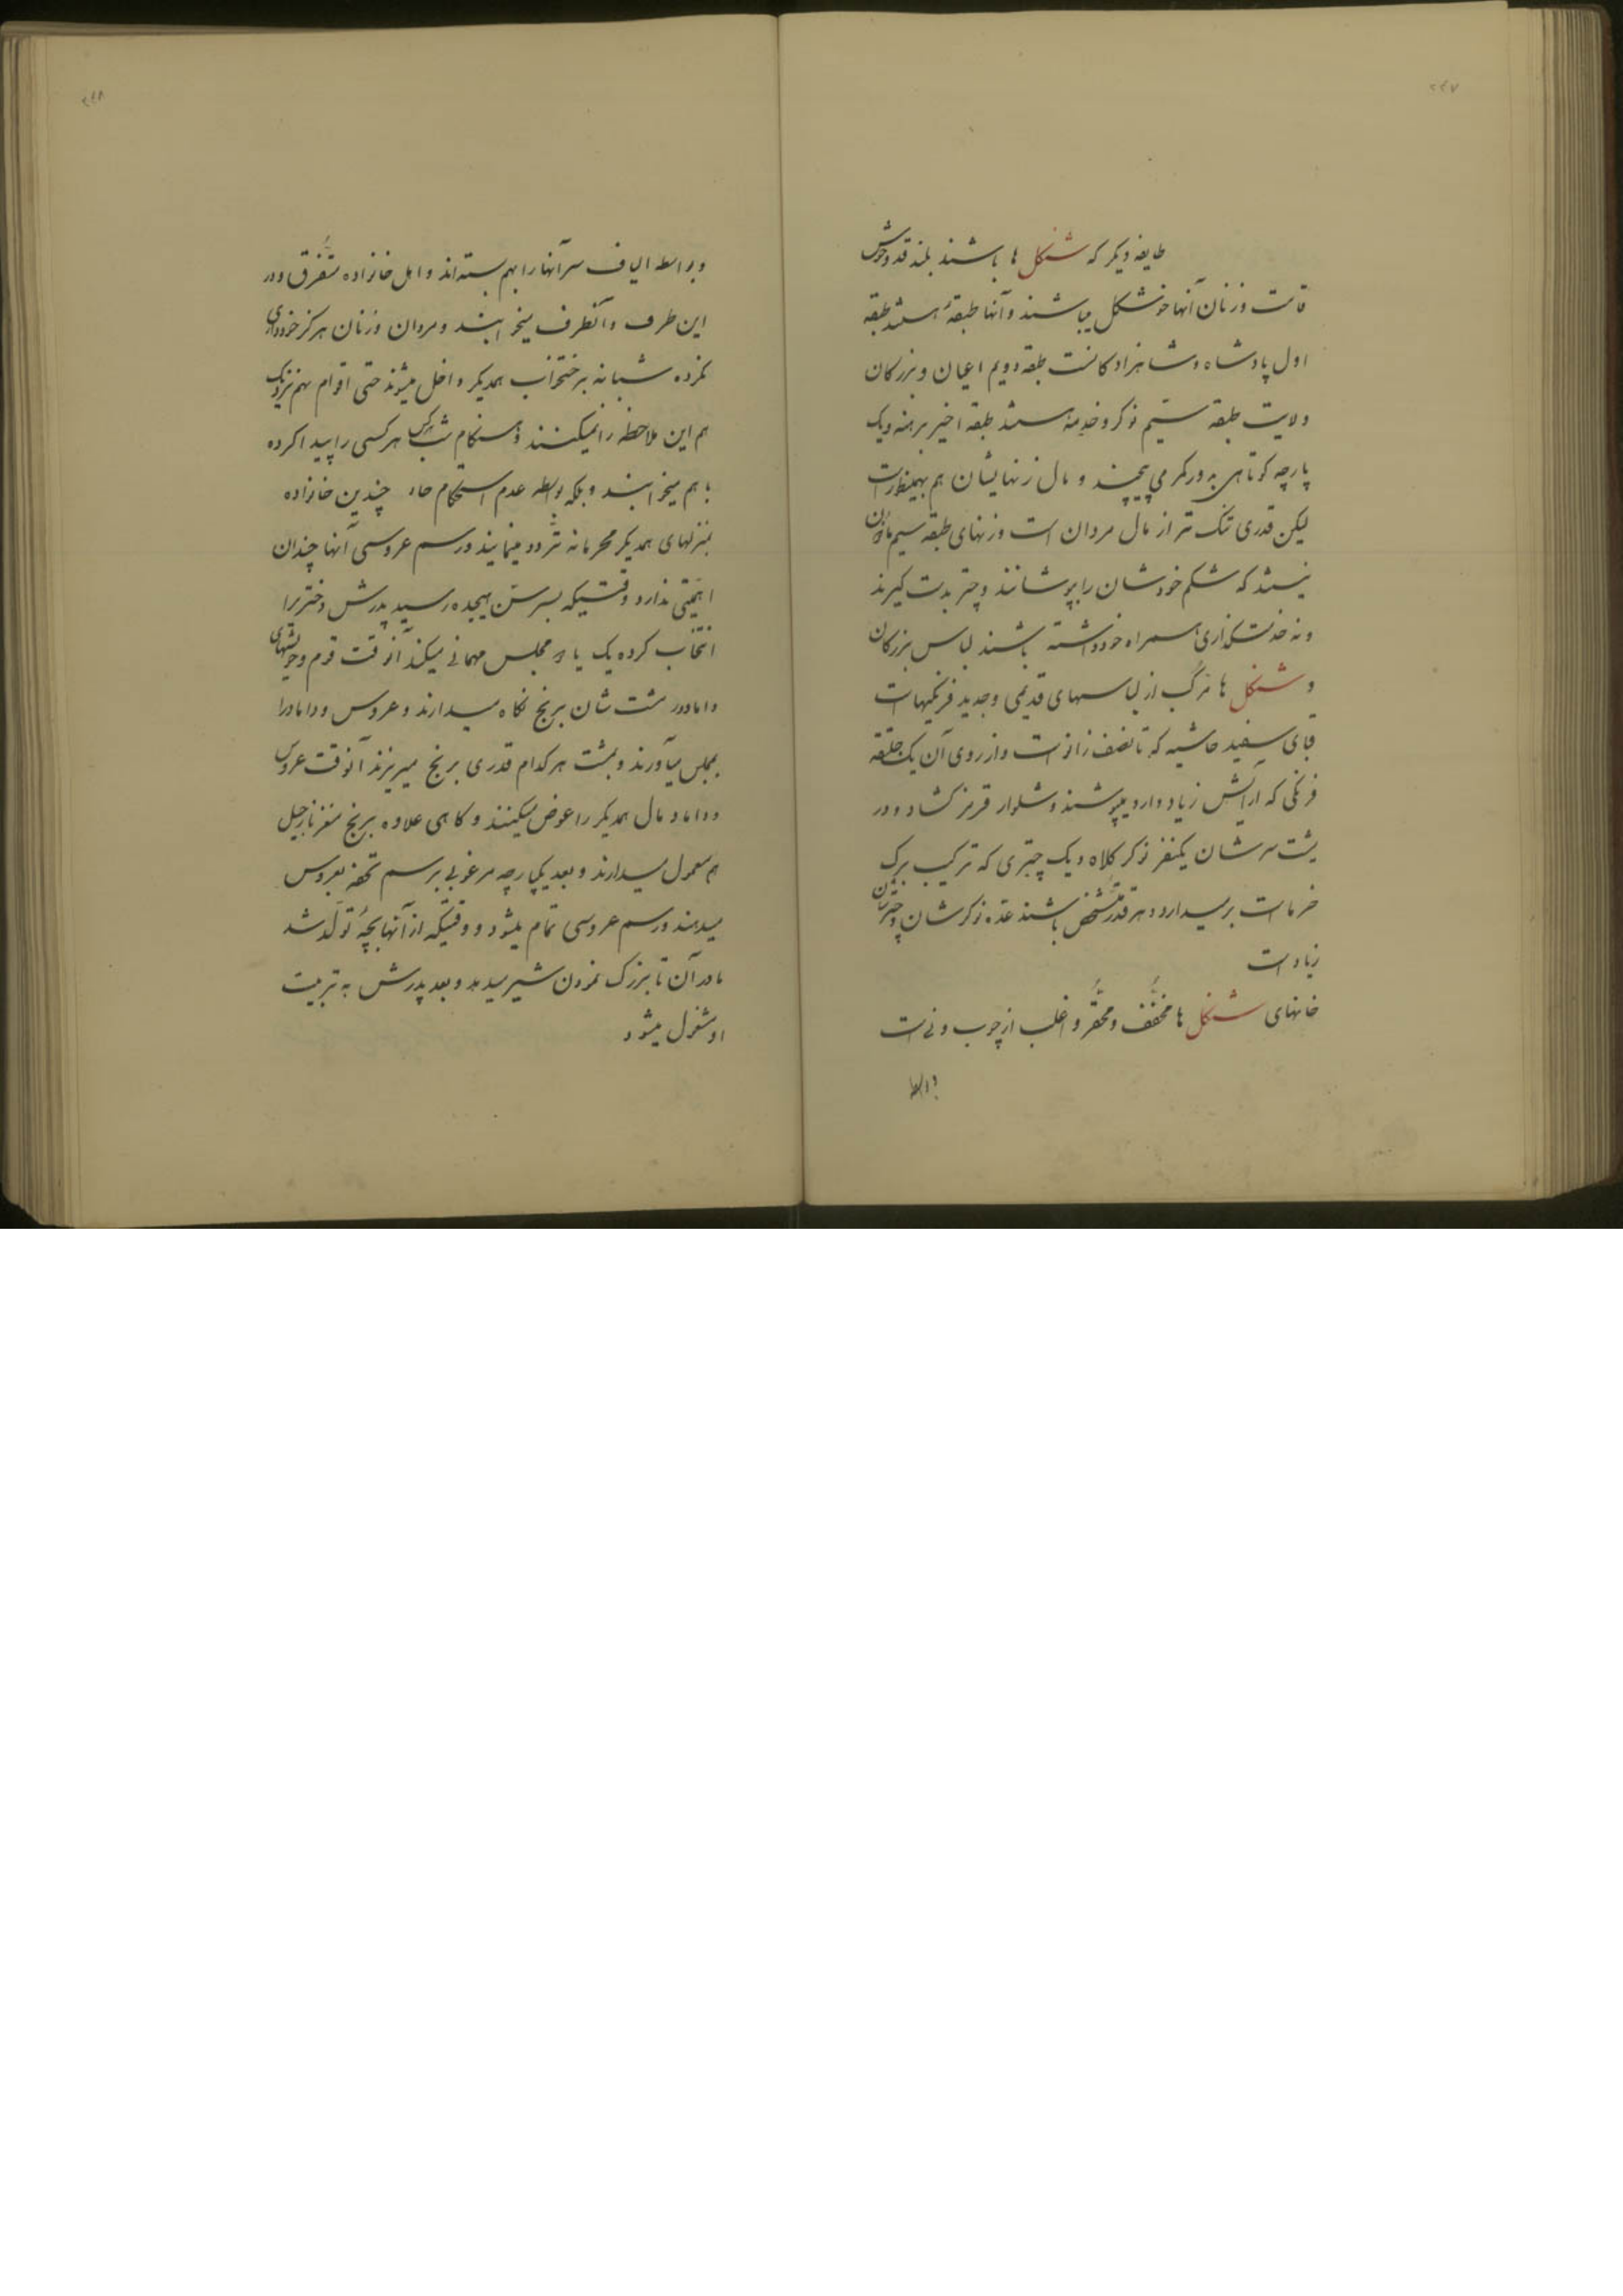 ۲۲۷
طایفه دیکر که شنکل ها باشند بلند قد و خوش
قامت و زنان آنها خوشکل میباشند و آنها طبقهٔ هستند طبقه
اول پادشاه و شاهزادکانست طبقه دویم اعیان و بزرکان
ولایت طبقه سیّم نوکر و خدمه هستند طبقه اخیر برهنه و یک
پارچه کوتاهی به دور کمر می پیچند و مال زنهایشان هم بهمینطور است
لیکن قدری تنک تر از مال مردان است و زنهای طبقه سیم ماذون
نیستند که شکم خودشان را بپوشانند و چتر بدست کیرند
و نه خدمتکذاری همراه خود داشته باشند لباس بزرکان
و شنکل ها مرکّب از لباسهای قدیمی و جدید فرنکیهاست
قبای سفید حاشیه که تا نصف زانوست و از روی آن یک جلتقه
فرنکی که آرایش زیاد دارد میپوشند و شلوار قرمز کشاد و در
پشت سرشان یکنفر نوکر کلاه و یک چتری که ترکیب برک
خرماست برمیدارد و هر قدر متشخّص باشند عدّه نوکرشان و چترشان
زیاد است
خانهای شنکل ها مخفّف و محقّر و اغلب از چوب و نی است
بواسطه
۲۲۸
و بواسطه الیاف سر آنها را بهم بسته‌اند و اهل خانواده متفرّق و در
این طرف و آنطرف میخوابند و مردان و زنان هرکز خودداری
نکرده شبانه برختخواب همدیکر داخل میشوند حتی اقوام بهم نزدیک
هم این ملاحظه را نمیکنند و هنکام شب هرکس هر کسی را پیدا کرده
با هم میخوابند و بلکه بواسطه عدم استحکام خانه چندین خانواده
بمنزلهای همدیکر محرمانه تردّد مینمایند و رسم عروسی آنها چندان
اهمّیّتی ندارد وقتیکه پسر بسن هیجده رسید پدرش دختر را
انتخاب کرده یک یا دو مجلس مهمانی میکند آنوقت قوم و خویشهای
داماد در مشت شان برنج نکاه میدارند و عروس و داماد را
بمجلس میآورند و بمشت هر کدام قدری برنج میریزند آنوقت عروس
و داماد مال همدیکر را عوض میکنند و کاهی علاوه برنج مغز نارجیل
هم معمول میدارند و بعد یکپارچه مرغوبی برسم تحفه بعروس
میدهند و رسم عروسی تمام میشود و وقتیکه از آنها بچهٔ تولّد شد
مادر آن تا بزرک نمودن شیر میدهد و بعد پدرش به تربیت
او مشغول میشود